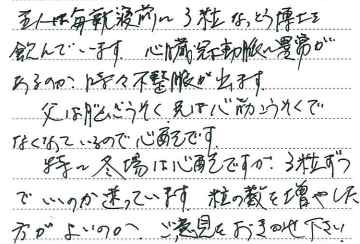 主人は毎朝寝前に3粒なっとう博士を
飲んでいます。心臓冠動脈に異常が
あるのか、時々不整脈が出ます。
父は脳こうそく 兄は心筋こうそくで
なくなっているので心配です。
特に冬場は心配ですが、3粒ずつ
でいいのか迷っています。粒の数を増やした
方がよいのか、ご意見をおきかせ下さい